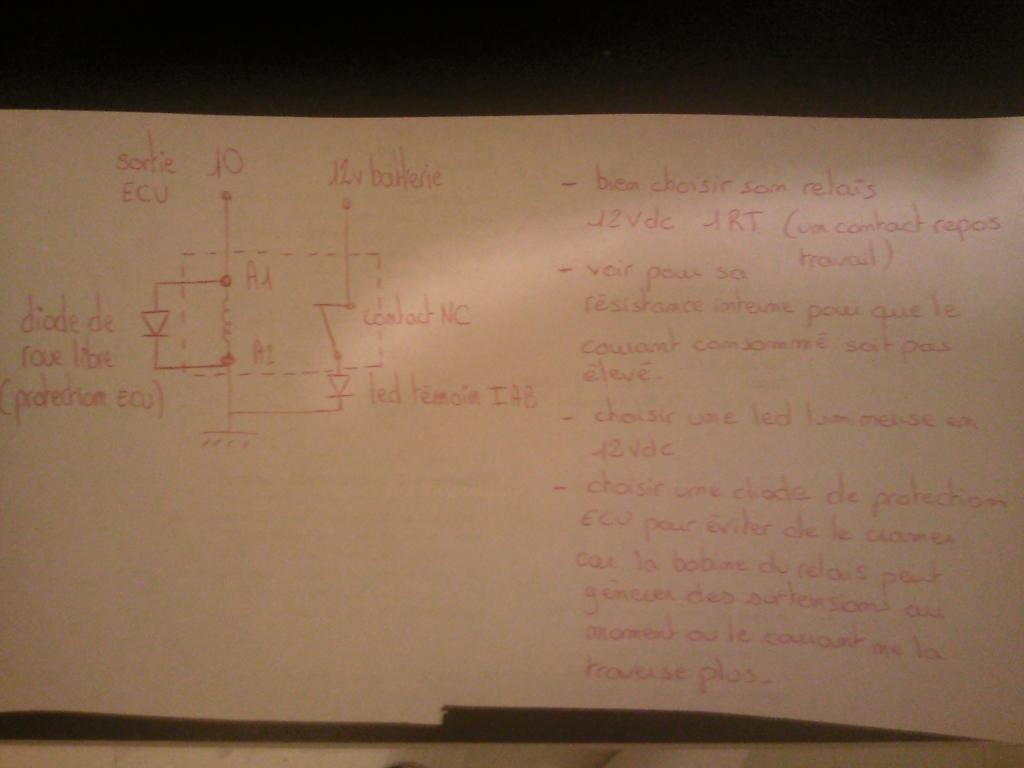 sortie 10
ECU
12v batterie
A1
diode de
roue libre
(protection ECU)
A2
contact NC
led témoin IAB
- bien choisir son relais
12Vdc 1RT (un contact repos
travail)
- voir pour sa
résistance interne pour que le
courant consommé soit pas
élevé.
- choisir une led lumineuse en
12Vdc
- choisir une diode de protection
ECU pour éviter de le cramer
car la bobine du relais peut
générer des surtensions au
moment ou le courant ne la
traverse plus.